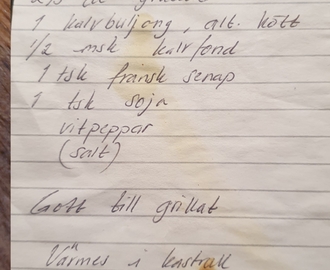 1 kalvbuljong, alt. kött
1/2 msk kalvfond
1 tsk fransk senap
1 tsk soja
vitpeppar
(salt)
Gott till grillat
Värmes i kastrull